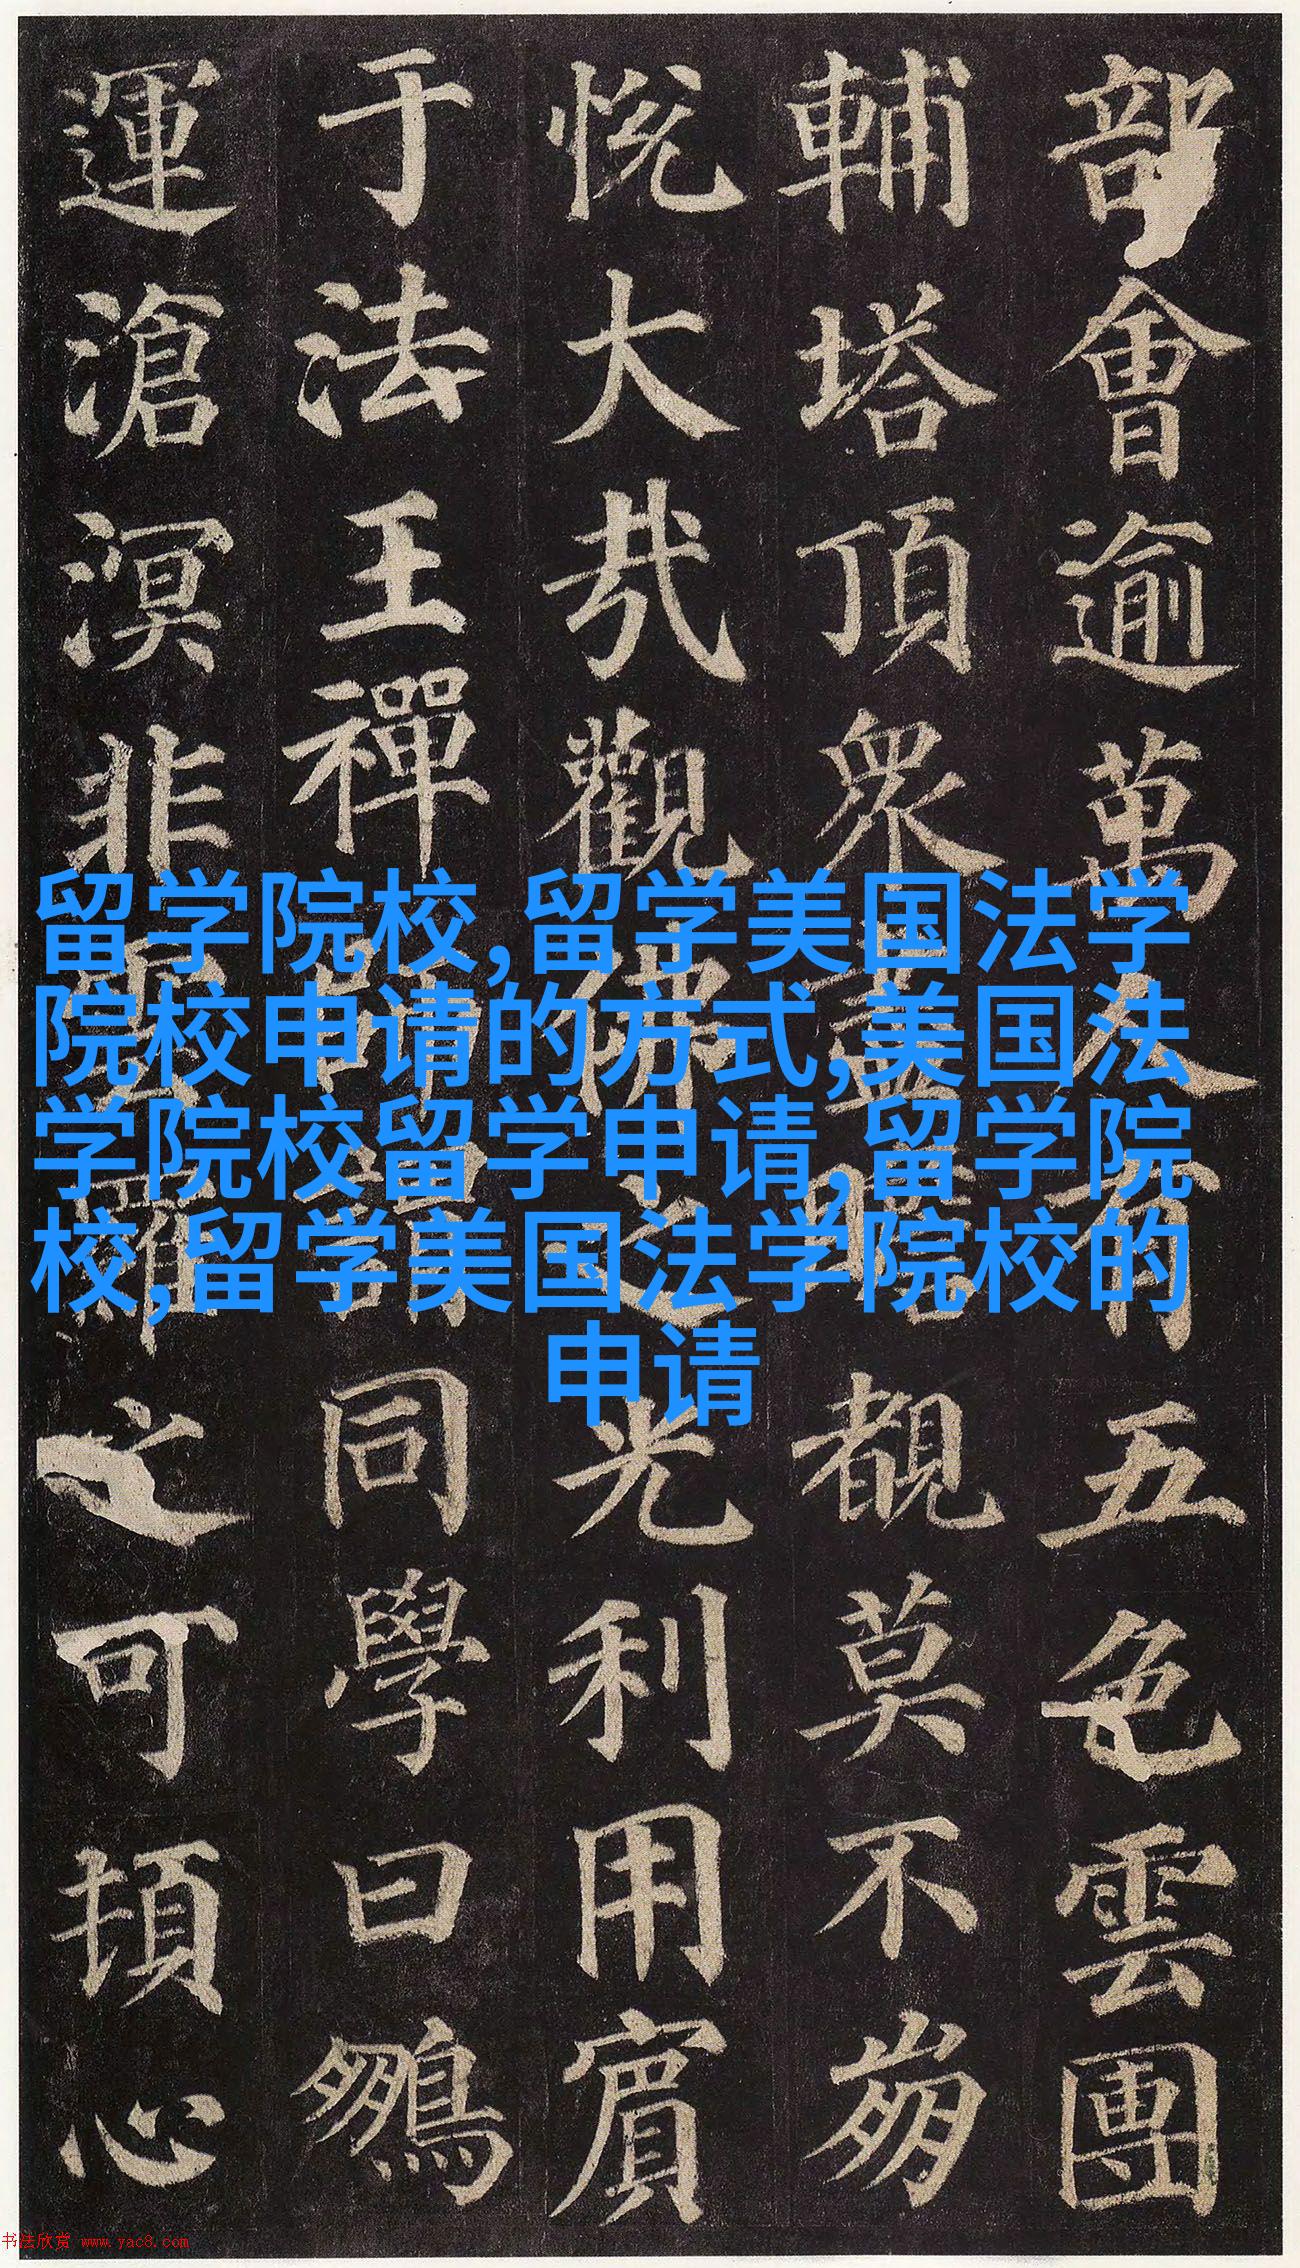 部會逾萬人有五色雲團
輔塔頂眾盡瞻覩莫不崩
悅大哉觀佛之光利用賓
于法王禪師謂同學曰鵬
運滄溟非雲羅之可頓心
留学院校,留学美国法学
院校申请的方式,美国法
学院校留学申请,留学院
校,留学美国法学院校的
申请
书法欣赏 www.yac8.com